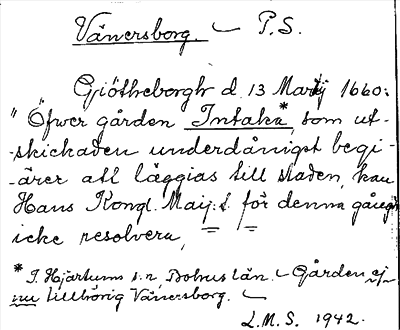 Vänersborg. P.S.
Gjötheborgh d. 13 Martij 1660:
" Öfwer gården Intaka*, som ut-
-skickaden underdånigst begi-
-ärer att läggias till staden, kan
Hans Kongl. Maij:t för denna gången
icke resolvera,
* I. Hjärtums s:n, Bohus län. Gården ej
nu tillhörig Vänersborg.
L.M.S. 1942.